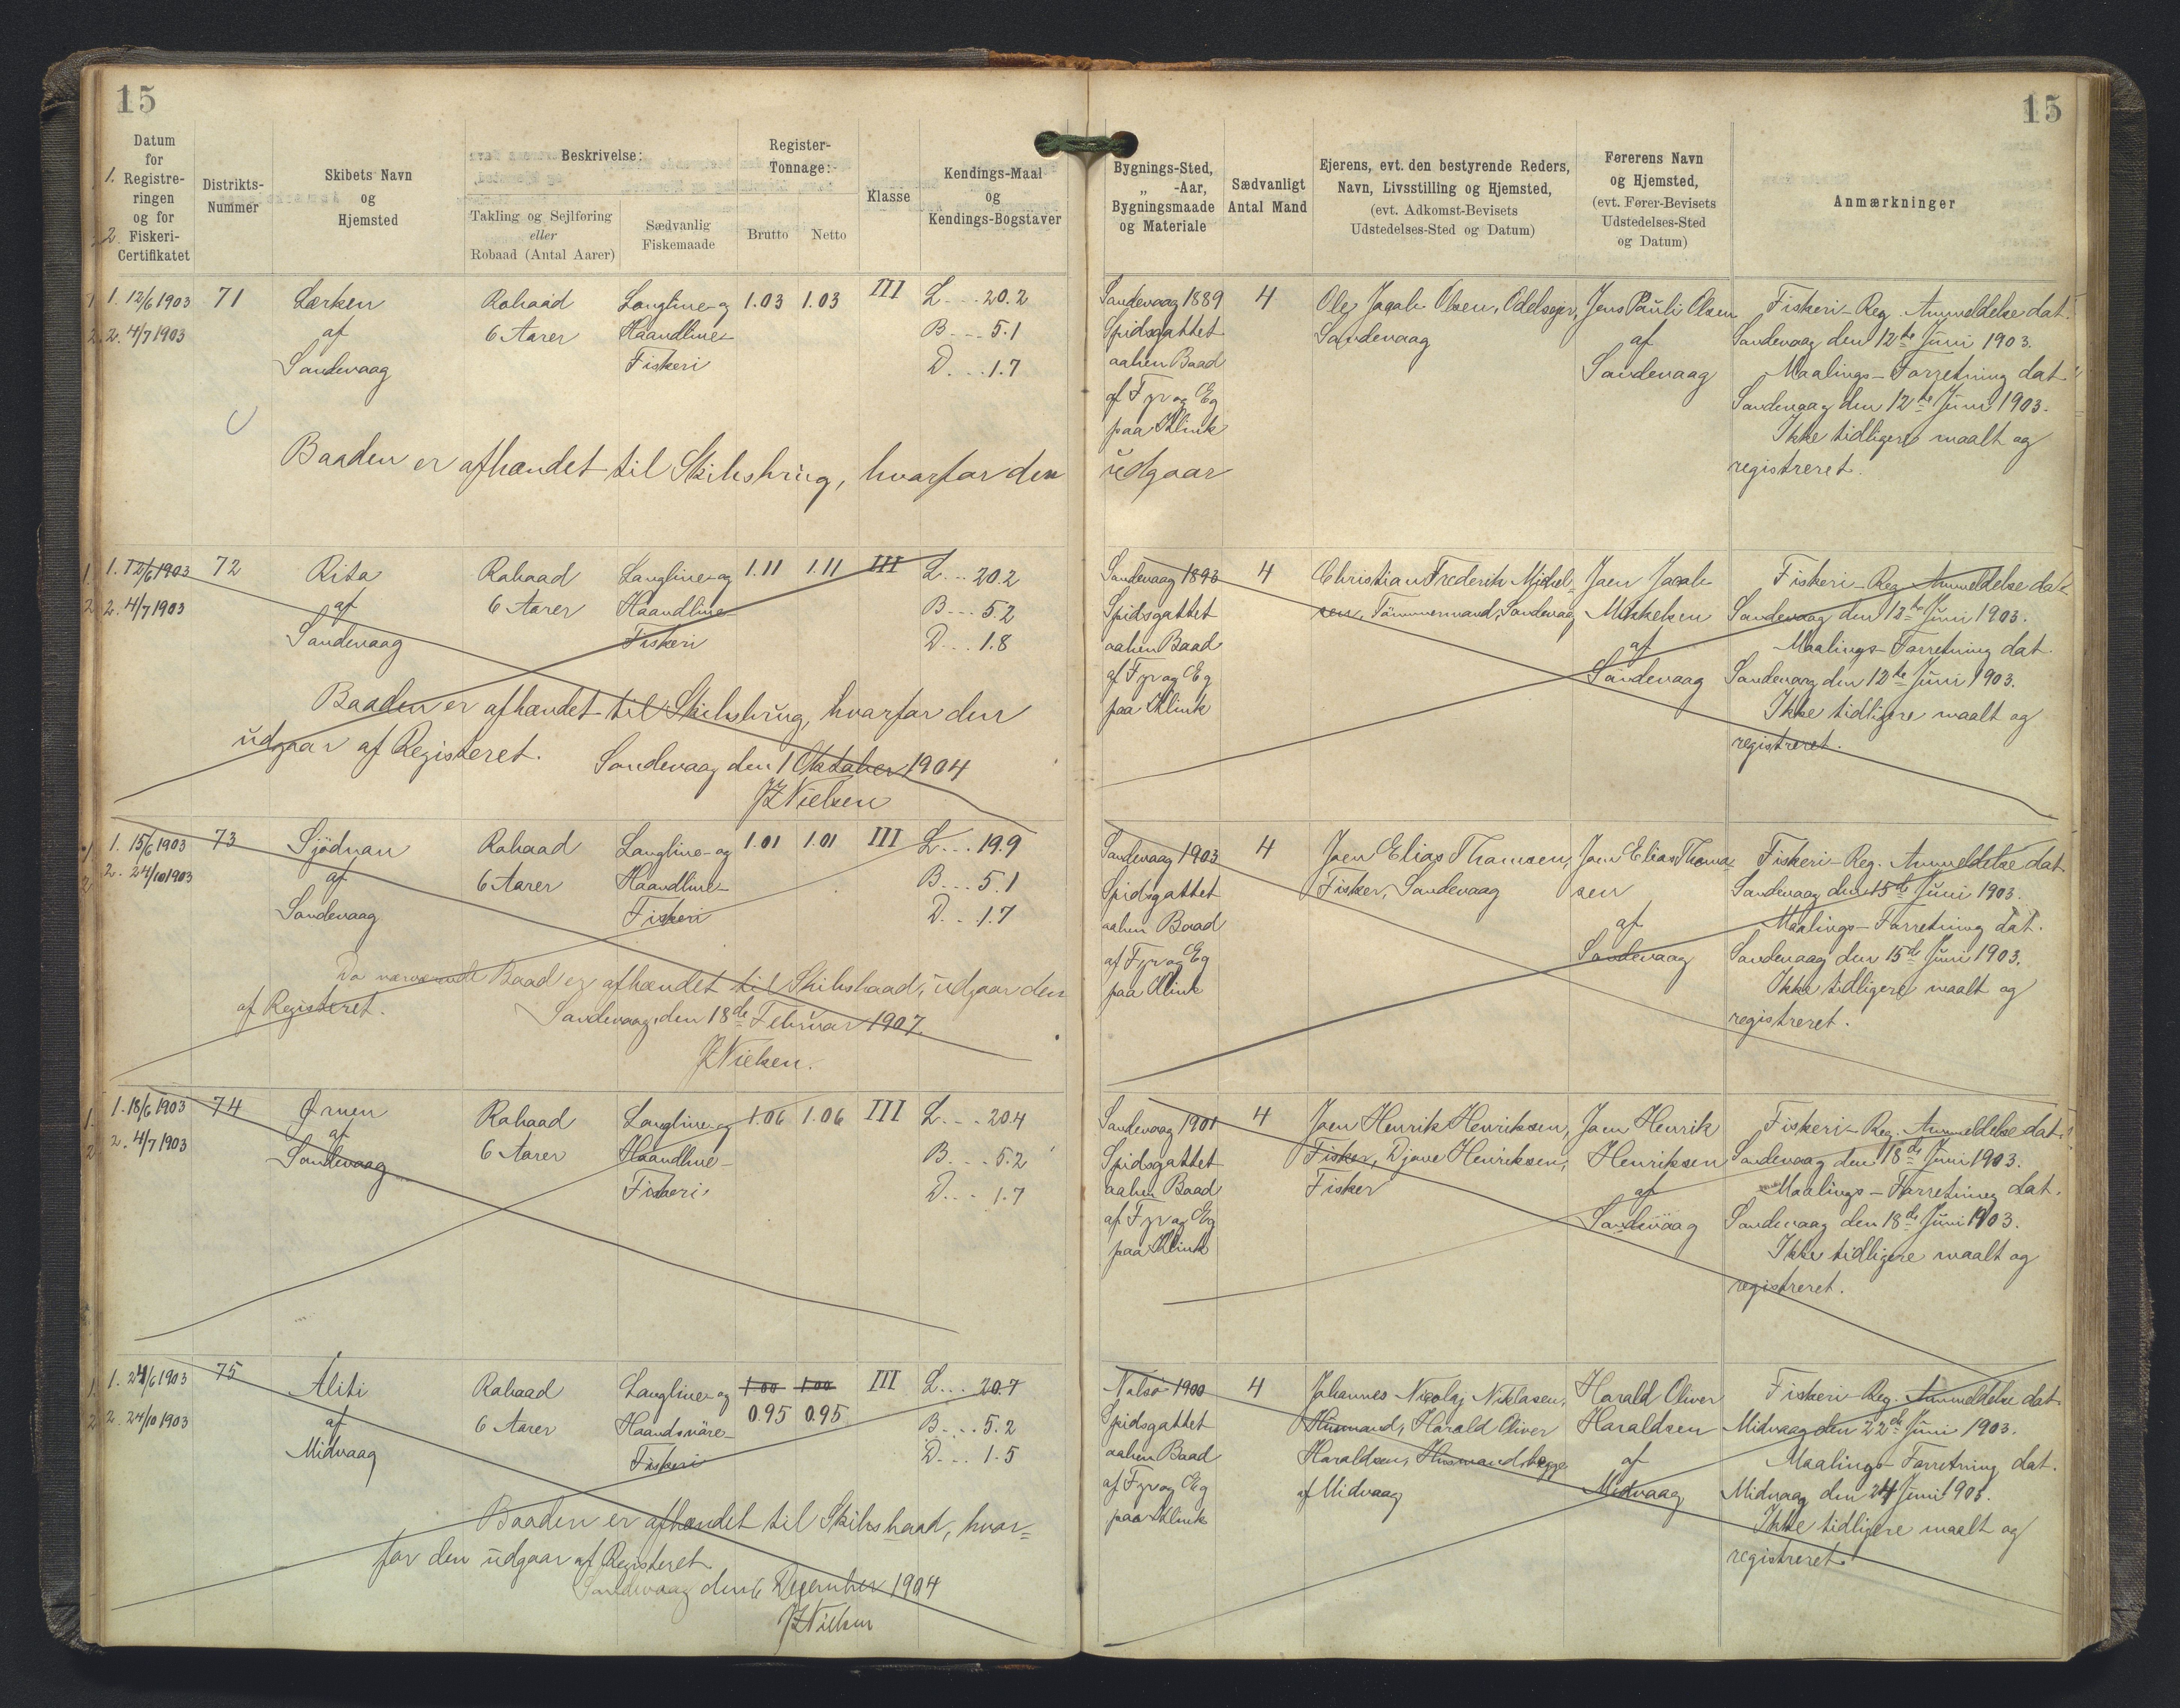 15
15
Datum
for
1. Registre-
ringen
og for
2. Fiskeri-
Certifikatet
Distrikts-
Nummer
Skibets Navn
og
Hjemsted
Beskrivelse:
Takling og Sejlføring
eller
Robaad (Antal Aarer)
Sædvanlig
Fiskemaade
Register-
Tonnage:
Brutto Netto
Klasse
Kendings-Maal
og
Kendings-Bogstaver
Bygnings-Sted,
„ -Aar,
Bygningsmaade
og Materiale
Sædvanligt
Antal Mand
Ejerens, evt. den bestyrende Reders,
Navn, Livsstilling og Hjemsted,
(evt. Adkomst-Bevisets
Udstedelses-Sted og Datum)
Førerens Navn
og Hjemsted,
(evt. Fører-Bevisets
Udstedelses-Sted
og Datum)
Anmærkninger
1. 12/6 1903
2. 4/7 1903
71
Lærken
af
Sandevaag
Robaad
6 Aarer
Langline- og
Haandline-
Fiskeri
1.03 1.03
III
L... 20.2
B... 5.1
D... 1.7
Sandevaag 1889
Spidsgattet
aaben Baad
af Fyr og Eg
paa Klink
4
Ole Jacob Olsen, Odelsejer,
Sandevaag
Jens Pauli Olsen
af
Sandevaag
Fiskeri-Reg. Anmeldelse dat.
Sandevaag den 12te Juni 1903.
Maalings-Forretning dat.
Sandevaag den 12te Juni 1903.
Ikke tidligere maalt og
registreret.
Baaden er afhændet til Skibsbrug, hvorfor den udgaar
1. 12/6 1903
2. 4/7 1903
72
Rita
af
Sandevaag
Robaad
6 Aarer
Langline- og
Haandline-
Fiskeri
1.11 1.11
III
L... 20.2
B... 5.2
D... 1.8
Sandevaag 1893
Spidsgattet
aaben Baad
af Fyr og Eg
paa Klink
4
Christian Frederik Mikkel-
sen, Tömmermand, Sandevaag
Joen Jacob
Mikkelsen
af
Sandevaag
Fiskeri-Reg. Anmeldelse dat.
Sandevaag den 12te Juni 1903.
Maalings-Forretning dat.
Sandevaag den 12te Juni 1903.
Ikke tidligere maalt og
registreret.
Baaden er afhændet til Skibsbrug, hvorfor den
udgaar af Registeret.
Sandevaag den 1 Oktober 1904
JZNielsen
1. 15/6 1903
2. 24/10 1903
73
Sjödnan
af
Sandevaag
Robaad
6 Aarer
Langline- og
Haandline-
Fiskeri
1.01 1.01
III
L... 19.9
B... 5.1
D... 1.7
Sandevaag 1903
Spidsgattet
aaben Baad
af Fyr og Eg
paa Klink
4
Joen Elias Thomsen,
Fisker, Sandevaag
Joen Elias Thom-
sen
af
Sandevaag
Fiskeri-Reg. Anmeldelse dat.
Sandevaag den 15de Juni 1903.
Maalings-Forretning dat.
Sandevaag den 15de Juni 1903.
Ikke tidligere maalt og
registreret.
Da nærværende Baad er afhændet til Skibsbaad, udgaar den
af Registeret.
Sandevaag, den 18de Februar 1907.
JZNielsen.
1. 18/6 1903
2. 4/7 1903
74
Ørnen
af
Sandevaag
Robaad
6 Aarer
Langline- og
Haandline-
Fiskeri
1.06 1.06
III
L... 20.4
B... 5.2
D... 1.7
Sandevaag 1901
Spidsgattet
aaben Baad
af Fyr og Eg
paa Klink
4
Joen Henrik Henriksen,
Fisker, Djone Henriksen,
Fisker
Joen Henrik
Henriksen
af
Sandevaag
Fiskeri-Reg. Anmeldelse dat.
Sandevaag den 18de Juni 1903.
Maalings-Forretning dat.
Sandevaag den 18de Juni 1903.
Ikke tidligere maalt og
registreret.
1. 24/6 1903
2. 24/10 1903
75
Aliti
af
Midvaag
Robaad
6 Aarer
Langline- og
Haandsnöre-
Fiskeri
1.00 1.00
0.95 0.95
III
L... 20.7
B... 5.2
D... 1.5
Nolsö 1900
Spidsgattet
aaben Baad
af Fyr og Eg
paa Klink
4
Johannes Nicolaj Niklasen,
Husmand, Harald Oliver
Haraldsen, Husmand, begge
af Midvaag
Harald Oliver
Haraldsen
af
Midvaag
Fiskeri-Reg. Anmeldelse dat.
Midvaag den 22de Juni 1903.
Maalings-Forretning dat.
Midvaag den 24 Juni 1903.
Ikke tidligere maalt og
registreret.
Baaden er afhændet til Skibsbaad, hvor=
for den udgaar af Registeret.
Sandevaag den 6 December 1904
JZNielsen